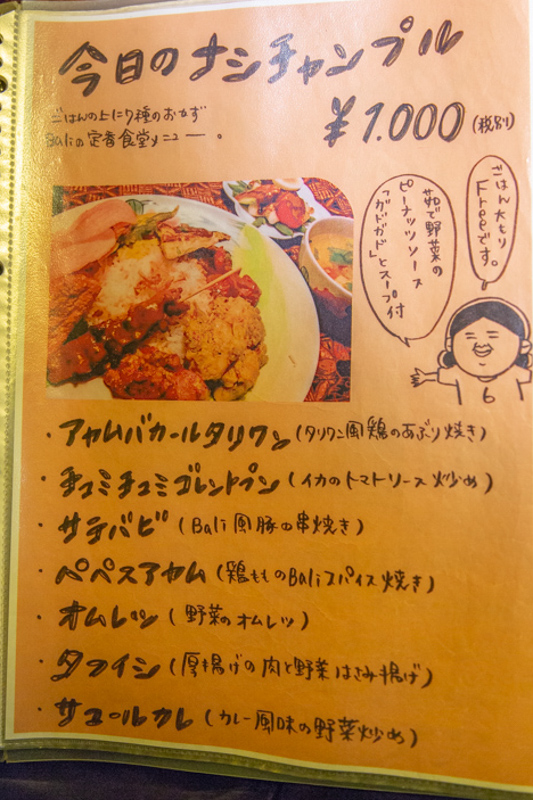 今日のナシチャンプル
ごはんの上に7種のおかず
Baliの定番食堂メニュー。
¥1.000(税別)
ごはん大もり
Freeです。
茹で野菜の
ピーナッツソース
「ガドガド」とスープ付
・アヤムバカールタリワン(タリワン風鶏のあぶり焼き)
・チュミチュミゴレントプン(イカのトマトソース炒め)
・サテバビ(Bali風豚の串焼き)
・ペペスアヤム(鶏もものBaliスパイス焼き)
・オムレツ(野菜のオムレツ)
・タフイシ(厚揚げの肉と野菜はさみ揚げ)
・サユールカレ(カレー風味の野菜炒め)